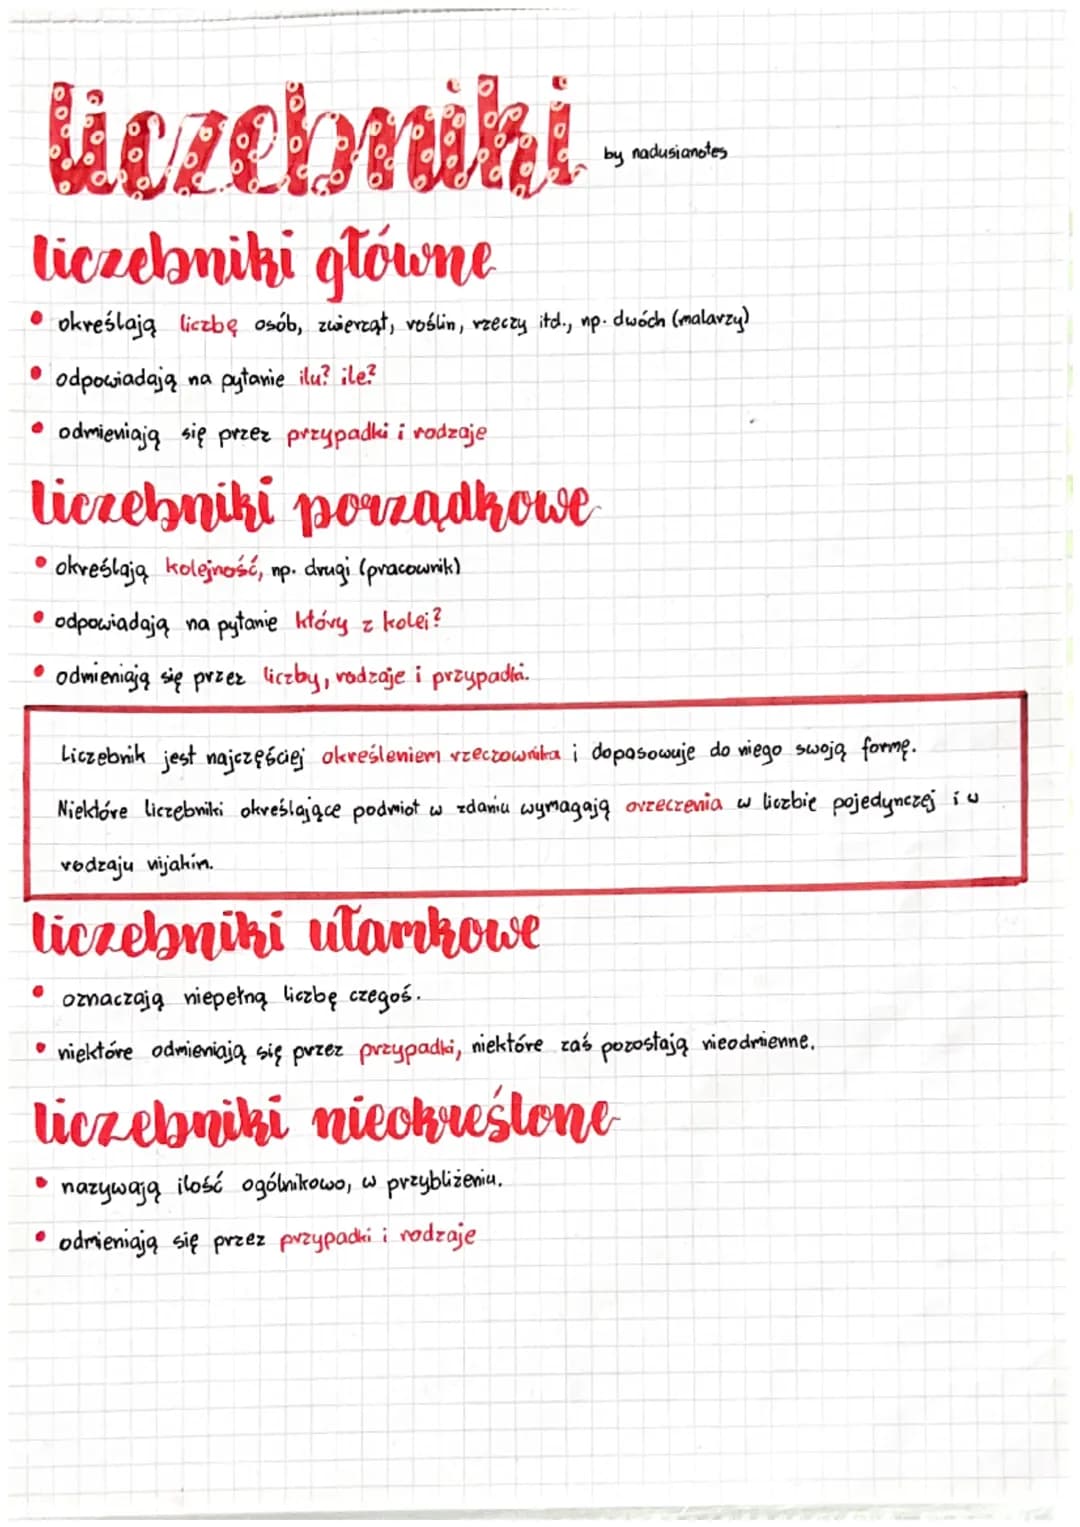 liczebniki
by nadusianotes
liczebniki główne
• określają liczbę osób, zwierząt, roślin, rzeczy itd., np. dwóch (malarzy)
• odpowiadają na pytanie ilu? ile?
• odmieniają się przez przypadki i rodzaje
liczebniki porządkowe
• określają kolejność, np. drugi (pracownik)
• odpowiadają na pytanie który z kolei?
• odmieniają się przez liczby, rodzaje i przypadki.
Liczebnik jest najczęściej określeniem rzeczownika i dopasowuje do niego swoją formę.
Niektóre liczebniki określające podmiot w zdaniu wymagają orzeczenia w liczbie pojedynczej i w
rodzaju nijakin.
liczebniki ułamkowe
• oznaczają niepełną liczbę czegoś.
• niektóre odmieniają się przez przypadki, niektóre zaś pozostają nieodmienne.
liczebniki nieokreślone
• nazywają ilość ogólnikowo, w przybliżeniu.
• odmieniają się przez przypadki i rodzaje